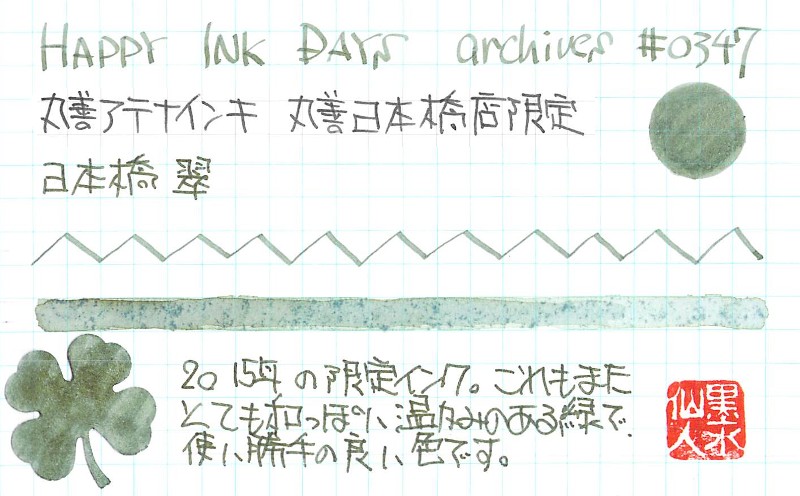 HAPPY INK DAYS archives #0347
丸善アテナインキ 丸善日本橋店限定
日本橋 翠
2015年の限定インク。これもまた
とても和っぽい温かみのある緑で、
使い勝手の良い色です。
墨水
仙人